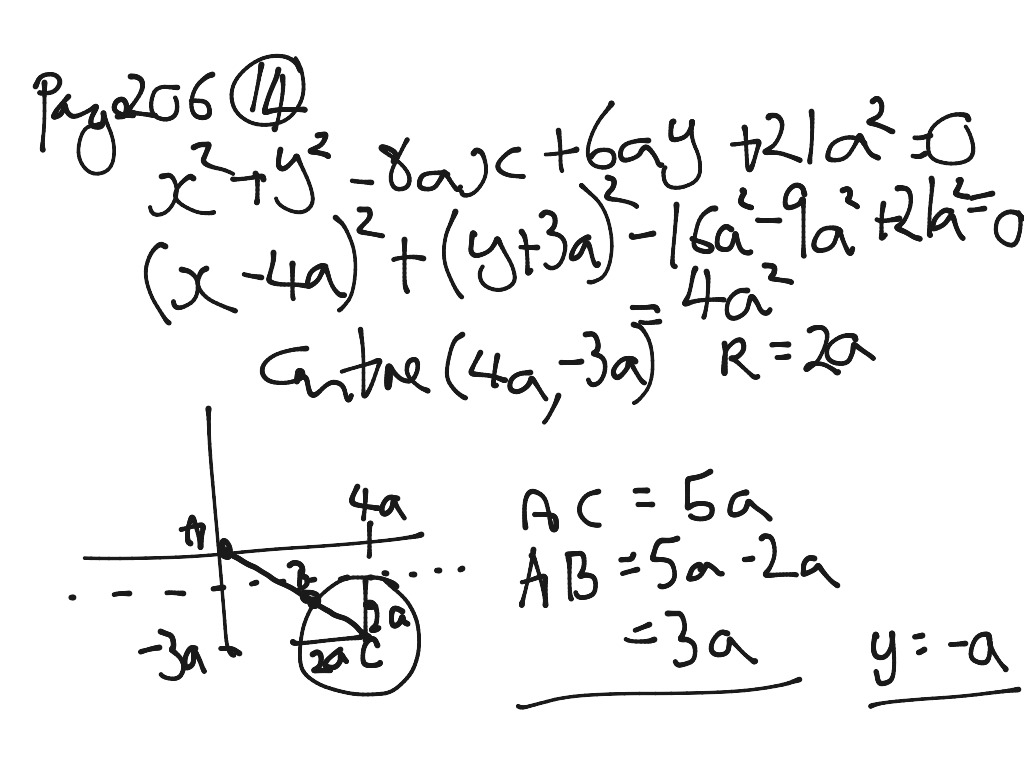 Page 206 14
x² + y² - 8ax + 6ay + 21a² = 0
(x - 4a)² + (y + 3a)² - 16a² - 9a² + 21a² = 0
= 4a²
Centre (4a, -3a) R = 2a
4a
A
B
-3a
2a
2a
C
AC = 5a
AB = 5a - 2a
= 3a
y = -a